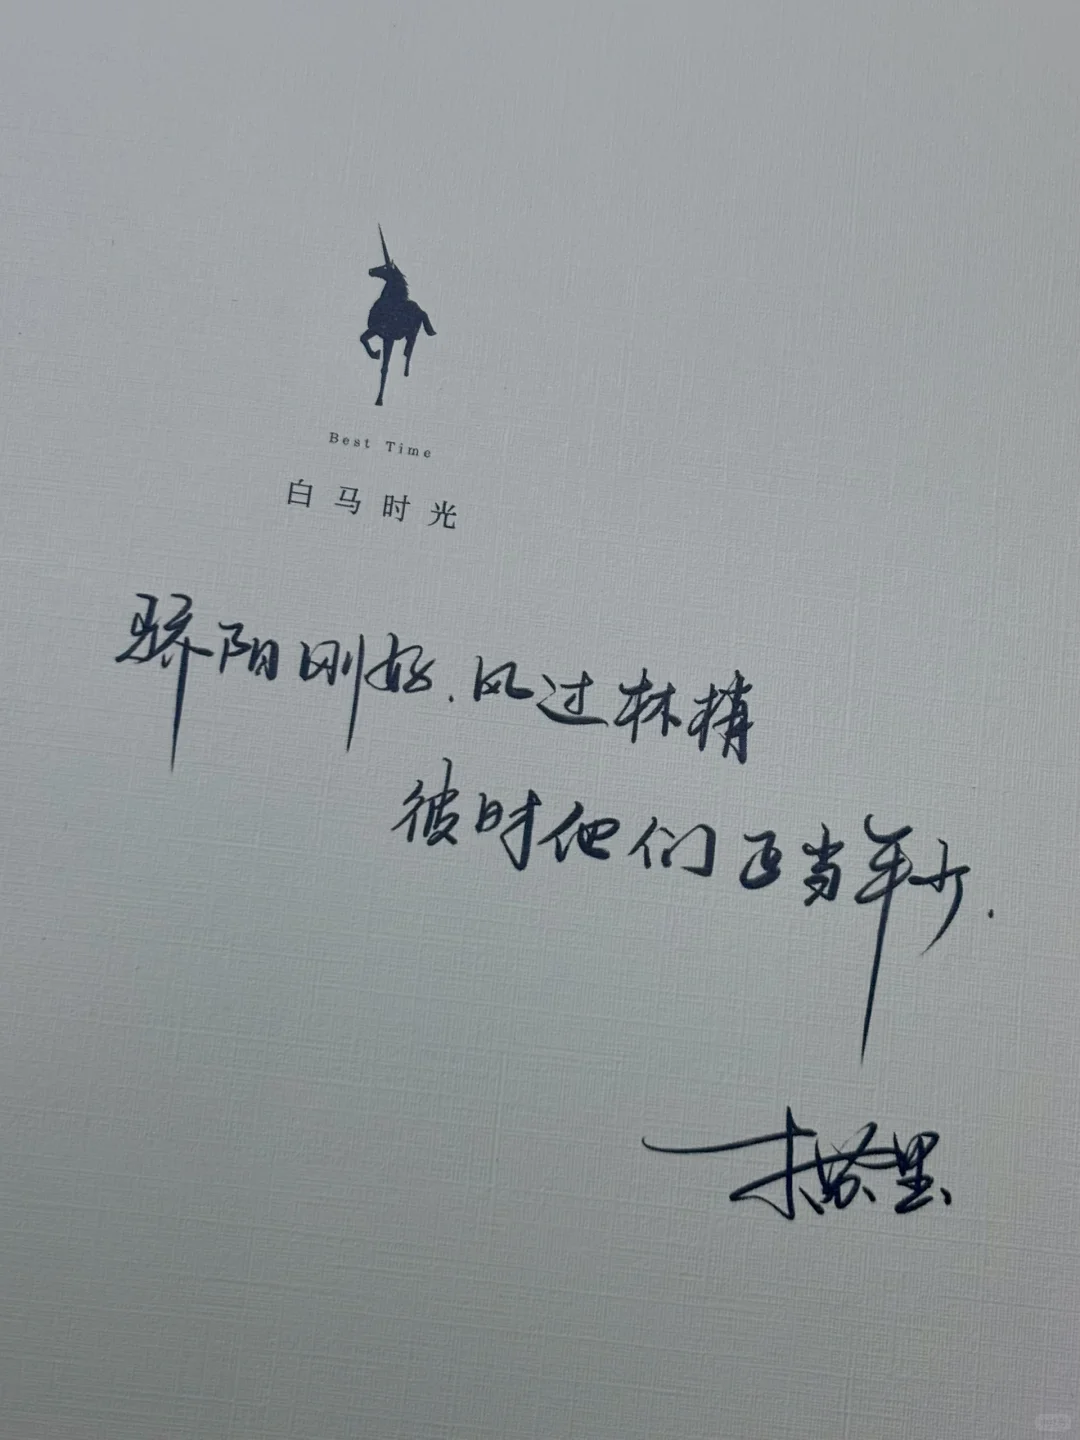 Best Time
白马时光
骄阳刚好.风过林梢
彼时他们正当年少.
木苏里